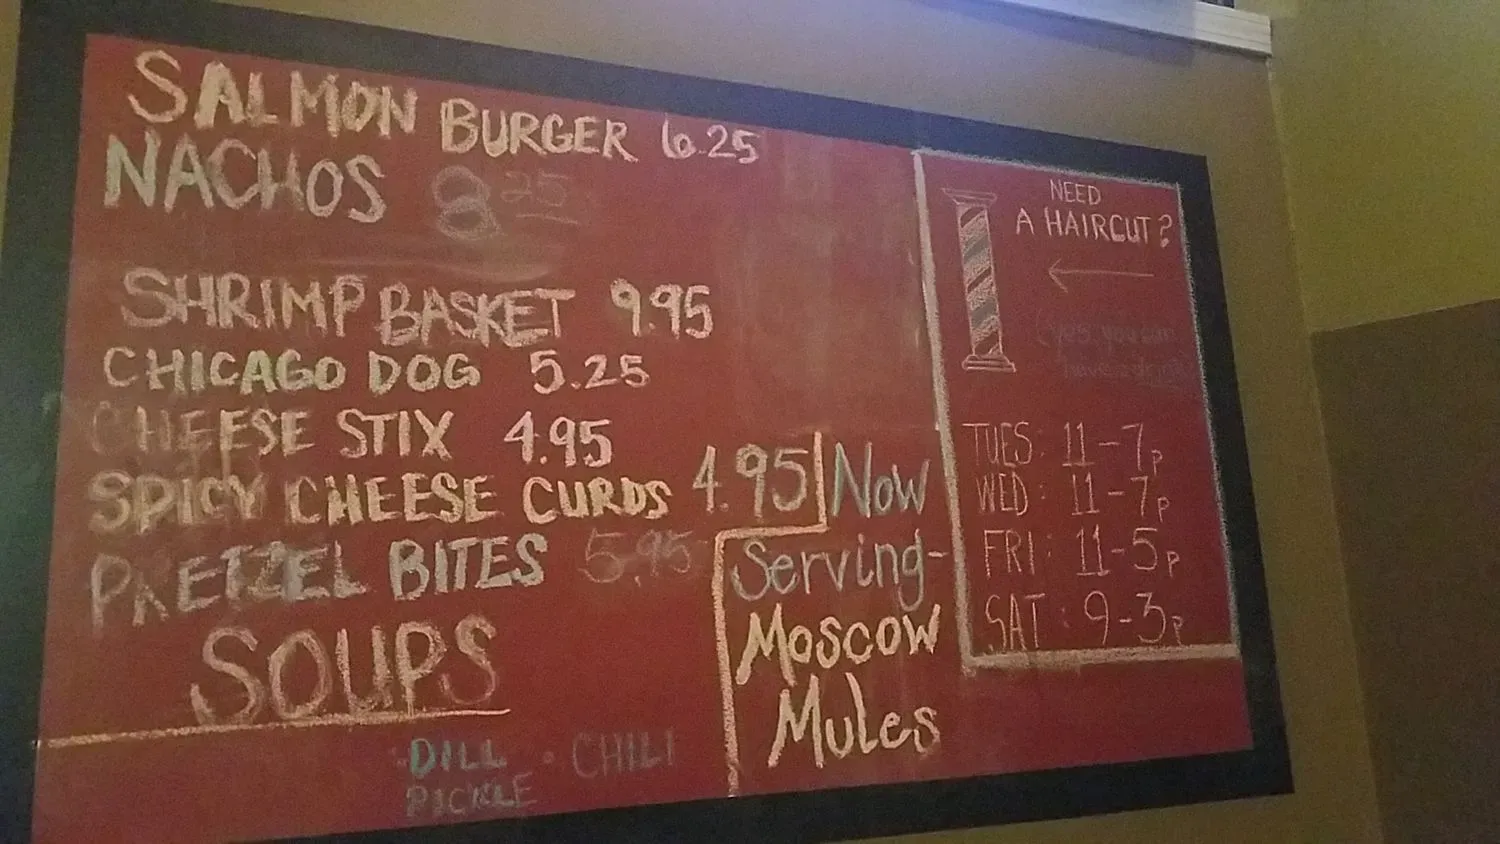 SALMON BURGER 6.25
NACHOS 8.25
SHRIMP BASKET 9.95
CHICAGO DOG 5.25
CHEESE STIX 4.95
SPICY CHEESE CURDS 4.95
PRETZEL BITES 5.95
SOUPS
·DILL PICKLE
· CHILI
Now
Serving-
Moscow
Mules
NEED
A HAIRCUT?
(yes, you can
have a drink
TUES: 11-7p
WED: 11-7p
FRI: 11-5p
SAT: 9-3p